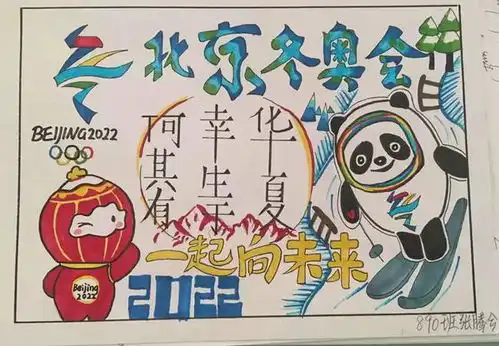 北京冬奥会
BEIJING2022
何其有
幸生于
华夏
一起向未来
2022
Beijing
2022
890班张腾